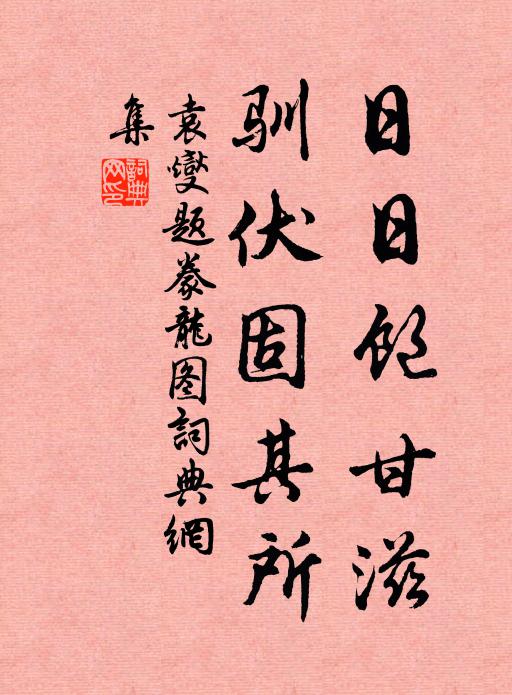 日日飽甘滋
馴伏固其所
袁燮题豢龍图詞典網
集
詞典網印